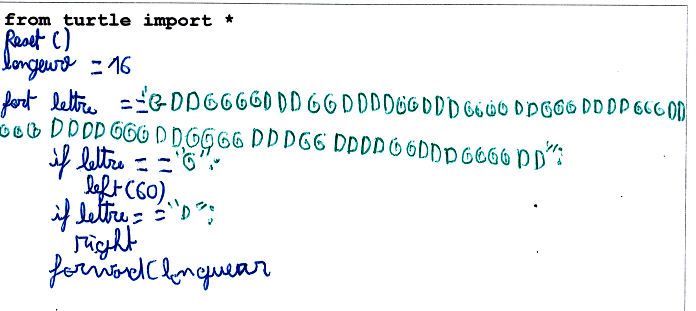 from turtle import *
Reset ()
longeur = 16
fort lettre == "GDDGGGGDDDGGDDDDGGDDDGGGGDDGGGDDDDGGGDD
GGGDDDDGGGDDGGGGGDDDGGDDDDGGDDDGGGGDD":
if lettre == "G":
left (60)
if lettre == "D":
right
forword(longuear